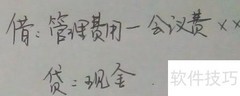 借：管理费用一会议费 ××
贷：现金
软件技巧